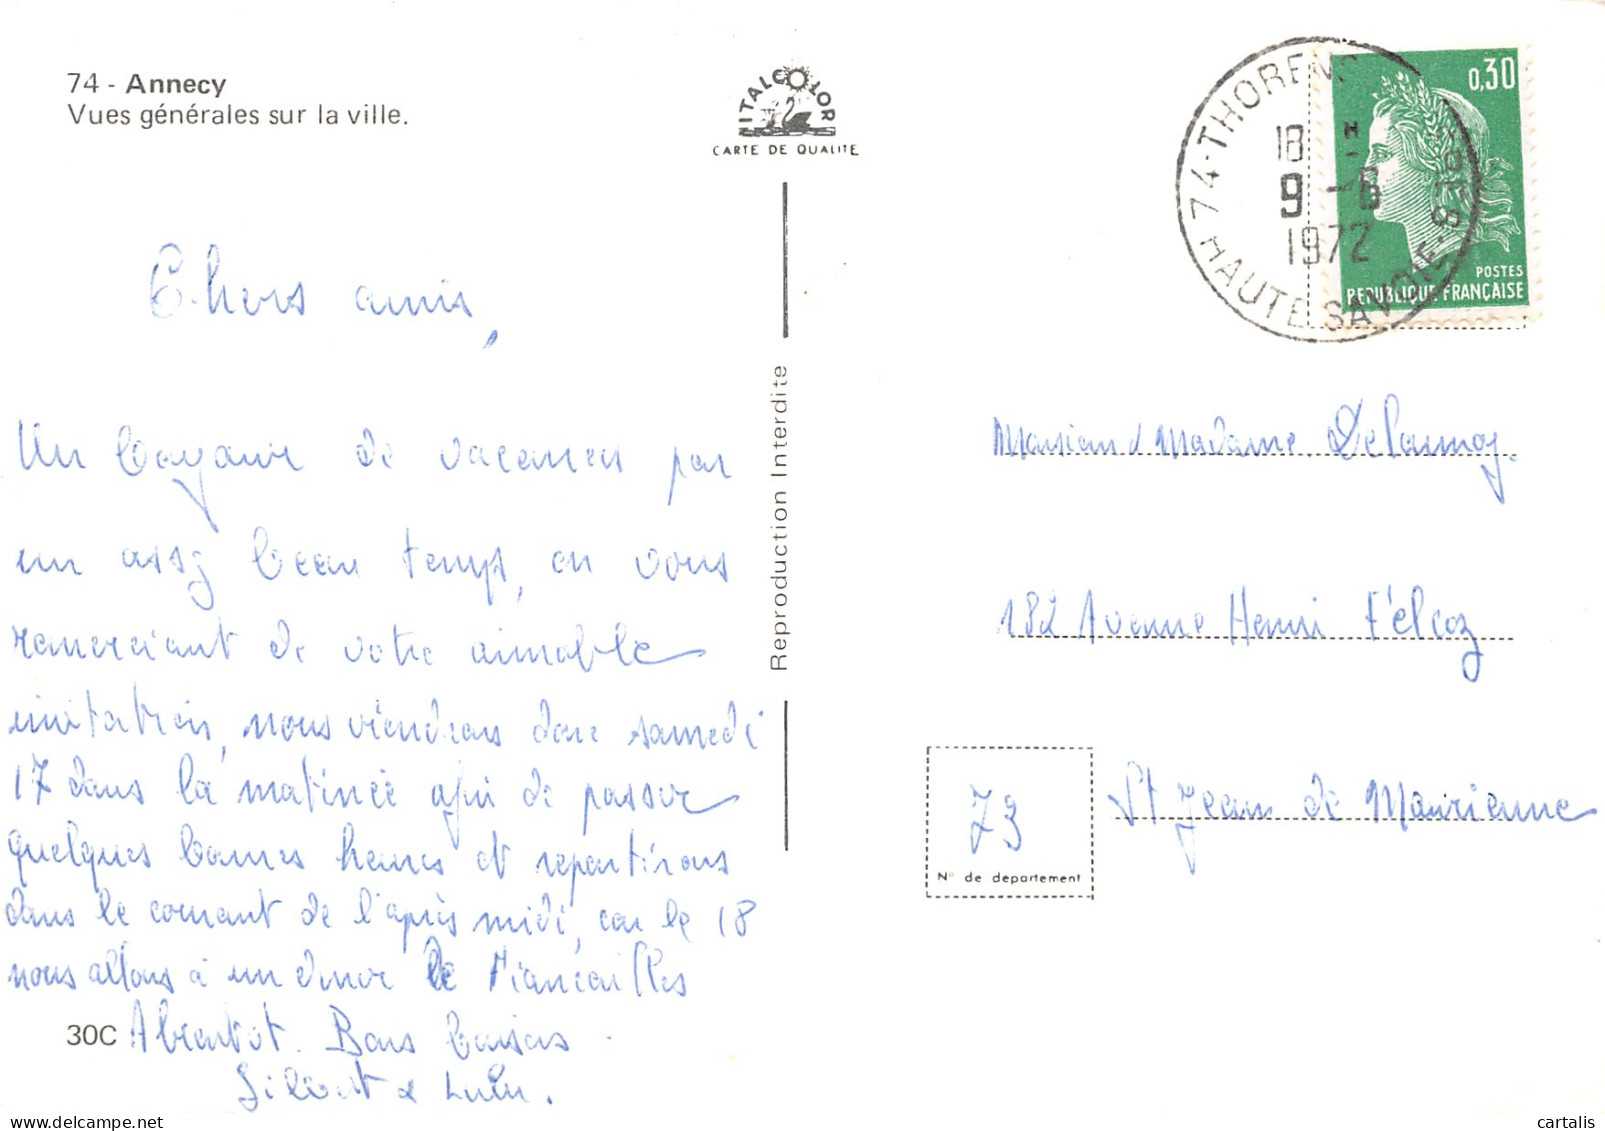 74 - Annecy
Vues générales sur la ville.
ITALCOLOR
CARTE DE QUALITE
Chers amis,
Un bonjour de vacances par
un assez beau temps, on vous
remerciant de votre aimable
invitation, nous viendrons donc samedi
17 dans la matinée afin de passer
quelques bonnes heures et repartirons
dans le courant de l'après midi, car le 18
nous allons à un diner de Fiancailles
A bientôt. Bons baisers
Gilbert & Lulu.
30C
Reproduction Interdite
74-THORENS
HAUTE SAVOIE
18 H
9 - 6
1972
0,30
POSTES
REPUBLIQUE FRANÇAISE
Monsieur & Madame Delaunoy
182 Avenue Henri Félcoz
73
St Jean de Maurienne
N° de département
cartalis